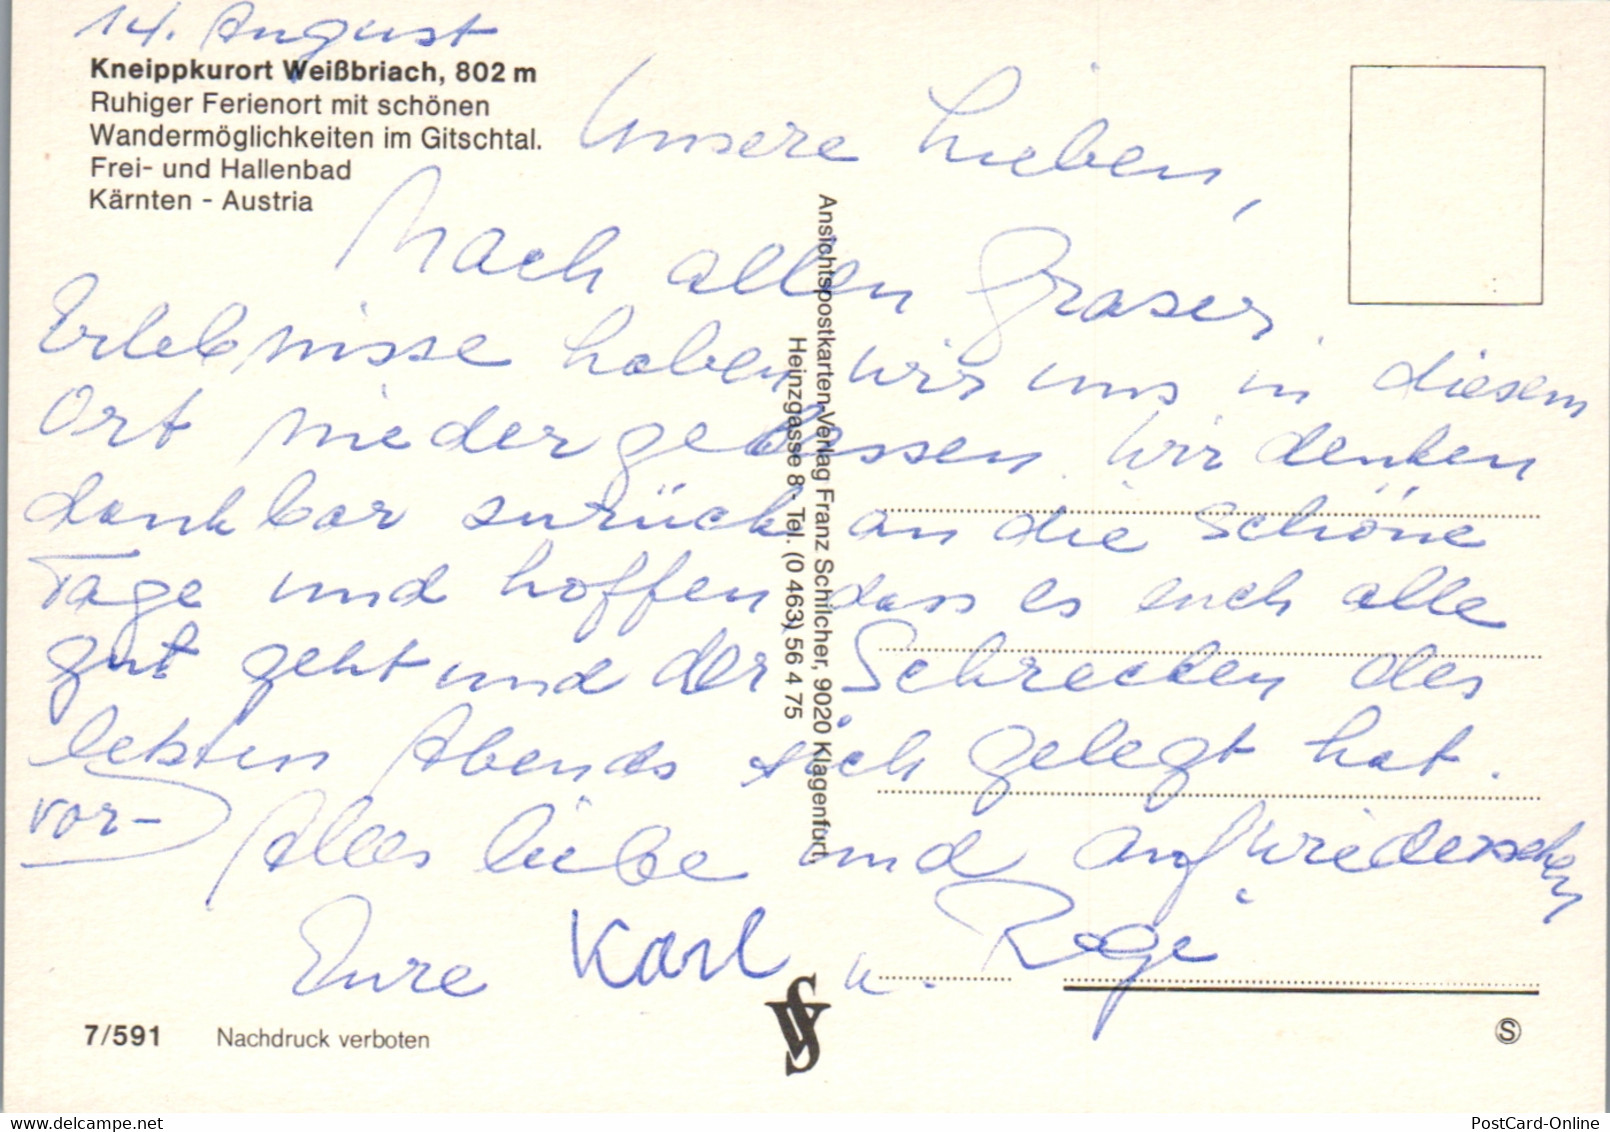 14. August
Kneippkurort Weißbriach, 802 m
Ruhiger Ferienort mit schönen
Wandermöglichkeiten im Gitschtal.
Frei- und Hallenbad
Kärnten - Austria
Unsere Lieben,
Nach allen Graser
Erlebnisse haben wir uns in diesem
Ort niedergelassen. Wir denken
dankbar zurück an die schöne
Tage und hoffen dass es euch alle
gut geht und der Schrecken des
letzten Abends sich gelegt hat.
vor-
Alles liebe und aufwiedersehen
Eure Karl u. Regi
Ansichtspostkarten-Verlag Franz Schilcher, 9020 Klagenfurt,
Heinzgasse 8 - Tel. (0 463) 56 4 75
7/591 Nachdruck verboten
S
delcampe.net
PostCard-Online